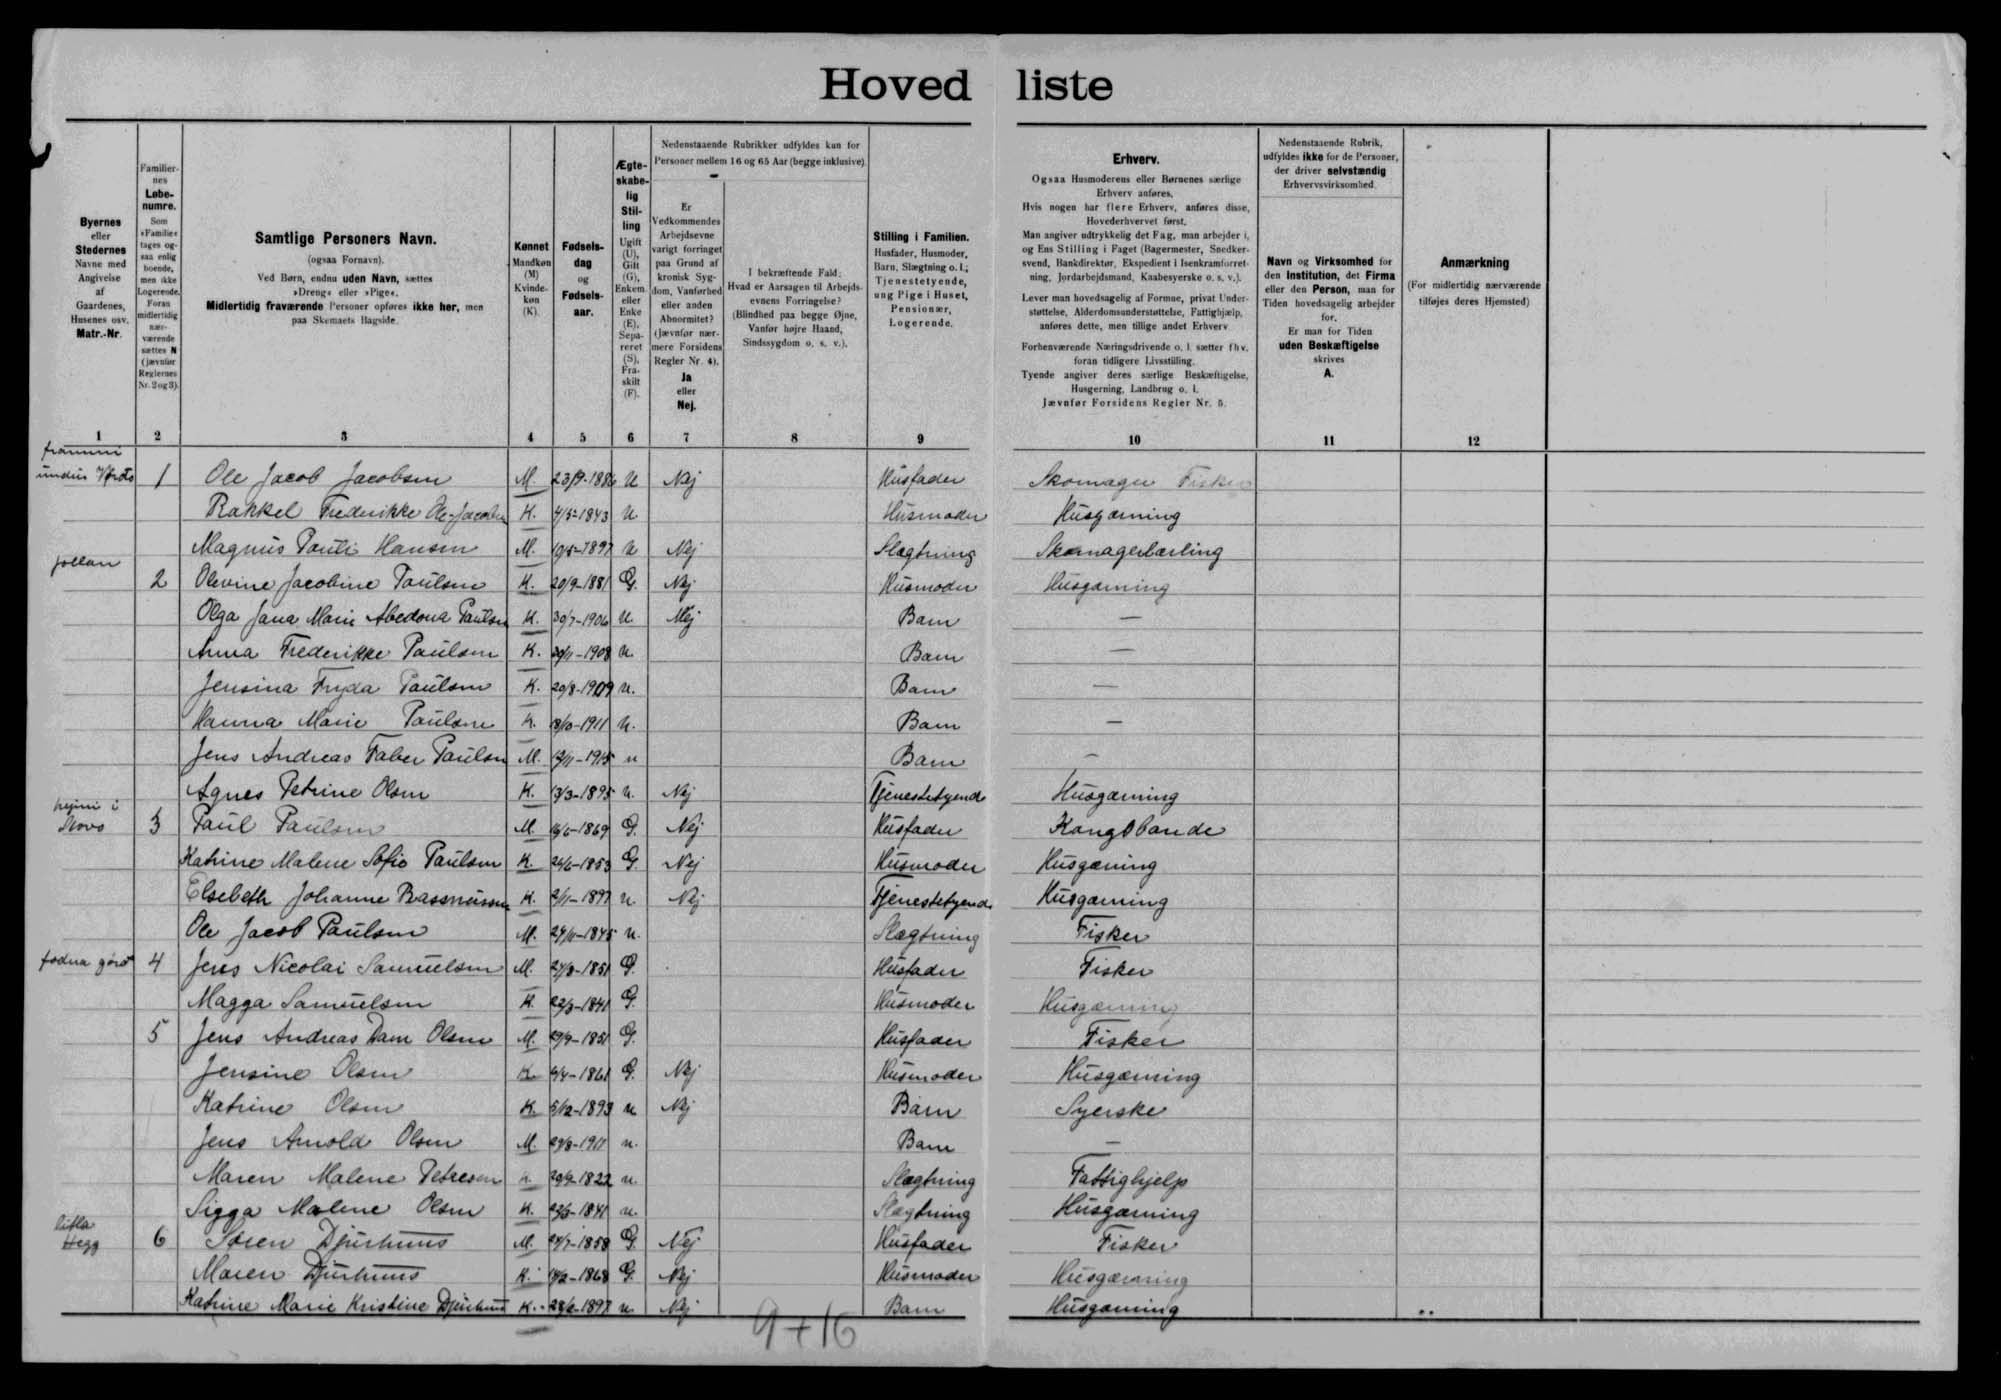 Hovedliste
Byernes
eller
Stedernes
Navne med
Angivelse
af
Gaardenes,
Husenes osv.
Matr.-Nr.
Familier-
nes
Løbe-
numre.
Som
»Familie«
tages og-
saa enlig
boende,
men ikke
Logerende.
Foran
midlertidig
nær-
værende
sættes N
(jævnfør
Reglernes
Nr. 2 og 3).
Samtlige Personers Navn.
(ogsaa Fornavn).
Ved Børn, endnu uden Navn, sættes
»Dreng« eller »Pige«.
Midlertidig fraværende Personer opføres ikke her, men
paa Skemaets Bagside.
Kønnet
Mandkøn
(M)
Kvinde-
køn
(K).
Fødsels-
dag
og
Fødsels-
aar.
Ægte-
skabe-
lig
Stil-
ling
Ugift
(U),
Gift
(G),
Enkem.
eller
Enke
(E),
Sepa-
reret
(S),
Fra-
skilt
(F).
Nedenstaaende Rubrikker udfyldes kun for
Personer mellem 16 og 65 Aar (begge inklusive).
Er
Vedkommendes
Arbejdsevne
varigt forringet
paa Grund af
kronisk Syg-
dom, Vanførhed
eller anden
Abnormitet?
(Jævnfør nær-
mere Forsidens
Regler Nr. 4).
Ja
eller
Nej.
I bekræftende Fald:
Hvad er Aarsagen til Arbejds-
evnens Forringelse?
(Blindhed paa begge Øjne,
Vanfør højre Haand,
Sindssygdom o. s. v.).
Stilling i Familien.
Husfader, Husmoder,
Barn, Slægtning o. l.;
Tjenestetyende,
ung Pige i Huset,
Pensionær,
Logerende.
Erhverv.
Ogsaa Husmoderens eller Børnenes særlige
Erhverv anføres.
Hvis nogen har flere Erhverv, anføres disse,
Hovederhvervet først.
Man angiver udtrykkelig det Fag, man arbejder i,
og Ens Stilling i Faget (Bagermester, Snedker-
svend, Bankdirektør, Ekspedient i Isenkramforret-
ning, Jordarbejdsmand, Kaabesyerske o. s. v.).
Lever man hovedsagelig af Formue, privat Under-
støttelse, Alderdomsunderstøttelse, Fattighjælp,
anføres dette, men tillige andet Erhverv
Forhenværende Næringsdrivende o. l. sætter fhv.
foran tidligere Livsstilling.
Tyende angiver deres særlige Beskæftigelse,
Husgerning, Landbrug o. l.
Jævnfør Forsidens Regler Nr. 5.
Nedenstaaende Rubrik,
udfyldes ikke for de Personer,
der driver selvstændig
Erhvervsvirksomhed.
Navn og Virksomhed for
den Institution, det Firma
eller den Person, man for
Tiden hovedsagelig arbejder
for.
Er man for Tiden
uden Beskæftigelse
skrives
A.
Anmærkning
(For midlertidig nærværende
tilføjes deres Hjemsted)
1 2 3 4 5 6 7 8 9 10 11 12
1 Ole Jacob Jacobsen M. 23/9-1886 U Nej Husfader Skomager Fisker
Rakkel Frederikke Ole-Jacobsen K. 4/5-1843 U. Husmoder Husgærning
Magnus Pauli Hansen M. 10/5-1897 U Nej Slægtning Skomagerlærling
2 Olevine Jacobine Paulsen K. 20/9-1881 G. Nej Husmoder Husgærning
Olga Jana Marie Abedona Paulsen K. 30/7-1906 U. Nej Barn —
Anna Frederikke Paulsen K. 20/11-1908 U. Barn —
Jensina Fryda Paulsen K. 20/8-1909 U. Barn —
Hanna Marie Paulsen K. 18/10-1911 U. Barn —
Jens Andreas Faber Paulsen M. 12/11-1915 u Barn —
Agnes Petrine Olsen K. 13/3-1895 U. Nej Tjenestetyende Husgærning
3 Paul Paulsen M. 16/6-1869 G. Nej Husfader Kongsbonde
Katrine Malene Sofie Paulsen K. 26/6-1853 G. Nej Husmoder Husgærning
Elsebeth Johanne Rassmussen K. 2/11-1897 U Nej Tjenestetyende Husgærning
Ole Jacob Paulsen M. 24/11-1845 U. Slægtning Fisker
4 Jens Nicolai Samuelsen M. 27/8-1851 G. Husfader Fisker
Magga Samuelsen K. 22/3-1841 G. Husmoder Husgærning
5 Jens Andreas Dam Olsen M. 29/9-1851 G. Husfader Fisker
Jensine Olsen K 4/4-1861 G. Nej Husmoder Husgærning
Katrine Olsen K. 5/12-1893 u Nej Barn Syerske
Jens Arnold Olsen M. 27/8-1911 u. Barn —
Maren Malene Petresen K. 20/9-1822 u. Slægtning Fattighjelp
Sigga Malene Olsen K. 22/3-1841 u. Slægtning Husgærning
6 Søren Djurhuus M. 24/7-1858 G. Nej Husfader Fisker
Maren Djurhuus K. 14/2-1868 G. Nej Husmoder Husgærning
Katrine Marie Kristine Djurhuus K. 28/6-1897 u. Nej Barn Husgærning
9+16